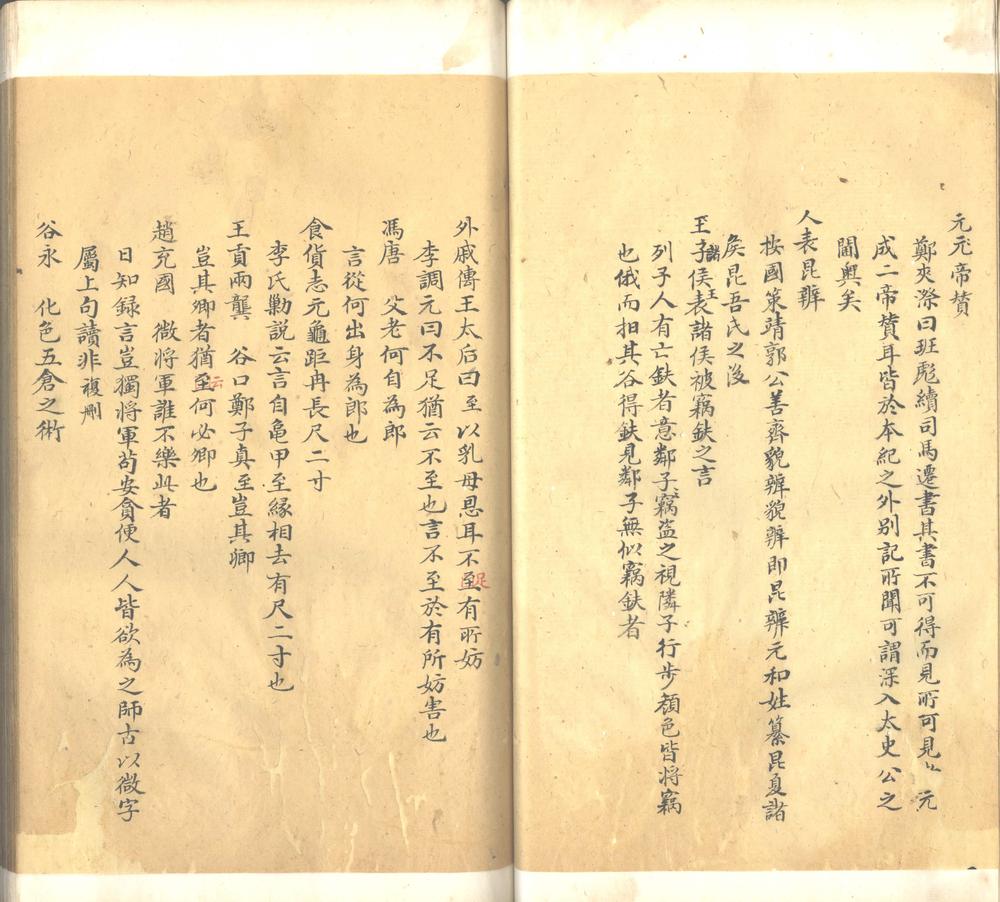 元元帝賛
鄭夾漈曰班彪續司馬遷書其書不可得而見所可見者元
成二帝賛耳皆於本紀之外别記所聞可謂深入太史公之
閫奥矣
人表昆辨
按國策靖郭公善齊貌辨貌辨即昆辨元和姓纂昆夏諸
矦昆吾氏之後
王子諸侯王表諸侯被竊鈇之言
列子人有亡鈇者意鄰子竊盜之視隣子行步顔色皆將竊
也俄而抇其谷得鈇見鄰子無似竊鈇者
外戚傳王太后曰至以乳母恩耳不至足有所妨
李調元曰不足猶云不至也言不至於有所妨害也
馮唐 父老何自為郎
言從何出身為郎也
食貨志元龜距冉長尺二寸
李氏勦説云言自龜甲至緣相去有尺二寸也
王貢兩龔 谷口鄭子真至豈其卿
豈其卿者猶至云何必卿也
趙充國 微將軍誰不樂此者
日知録言豈獨將軍苟安貪便人人皆欲為之師古以微字
屬上句讀非複刪
谷永 化色五倉之術